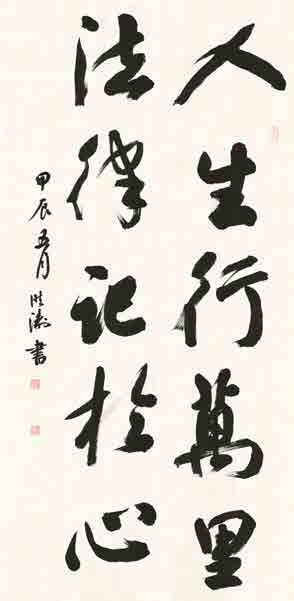 人生行萬里
法律记於心
甲辰五月
书